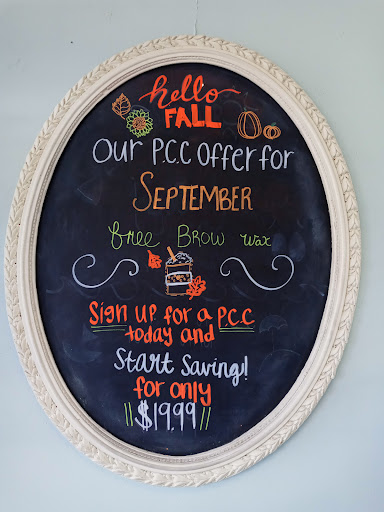 hello
FALL
Our P.C.C Offer for
SEPTEMBER
free BROW wax
Sign up for a P.C.C
today and
Start Saving!
for only
$19.99